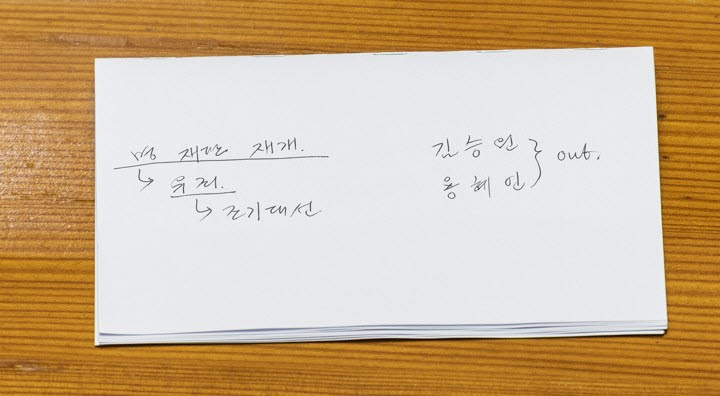 명 재판 재개.
↳ 유죄.
↳ 조기대선
김승원
용혜인 } out.